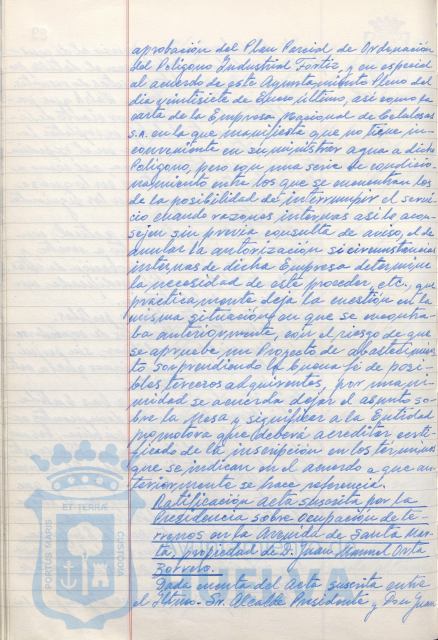 aprobación del Plan Parcial de Ordenación
del Polígono Industrial Fortiz, y en especial
al acuerdo de este Ayuntamiento Pleno del
día veintisiete de Enero último, así como la
carta de la Empresa Nacional de Celulosas
S.A. en la que manifiesta que no tiene in-
conveniente en suministrar agua a dicho
Polígono, pero con una serie de condicio-
namiento entre los que se encuentran los
de la posibilidad de interrumpir el servi-
cio cuando razones internas así lo acon-
sejen sin previa consulta de aviso, el de
anular la autorización si circunstancias
internas de dicha Empresa determine
la necesidad de este proceder, etc., que
prácticamente deja la cuestión en la
misma situación en que se encontra-
ba anteriormente, con el riesgo de que
se apruebe un Proyecto de abastecimien-
to sorprendiendo la buena fé de posi-
bles terceros adquirentes, por unani-
midad se acuerda dejar el asunto so-
bre la Mesa y significar a la Entidad
promotora que deberá acreditar certi-
ficado de la inscripción en los términos
que se indican en el acuerdo a que an-
teriormente se hace referencia.
Ratificación acta suscrita por la
Presidencia sobre ocupación de te-
rrenos en la Avenida de Santa Mar-
ta, propiedad de D. Juan Manuel Orta
Borrero.
Dada cuenta del Acta suscrita entre
el Iltmo. Sr. Alcalde Presidente y Don Juan
PORTUS MARIS
ET TERRÆ
CUSTODIA